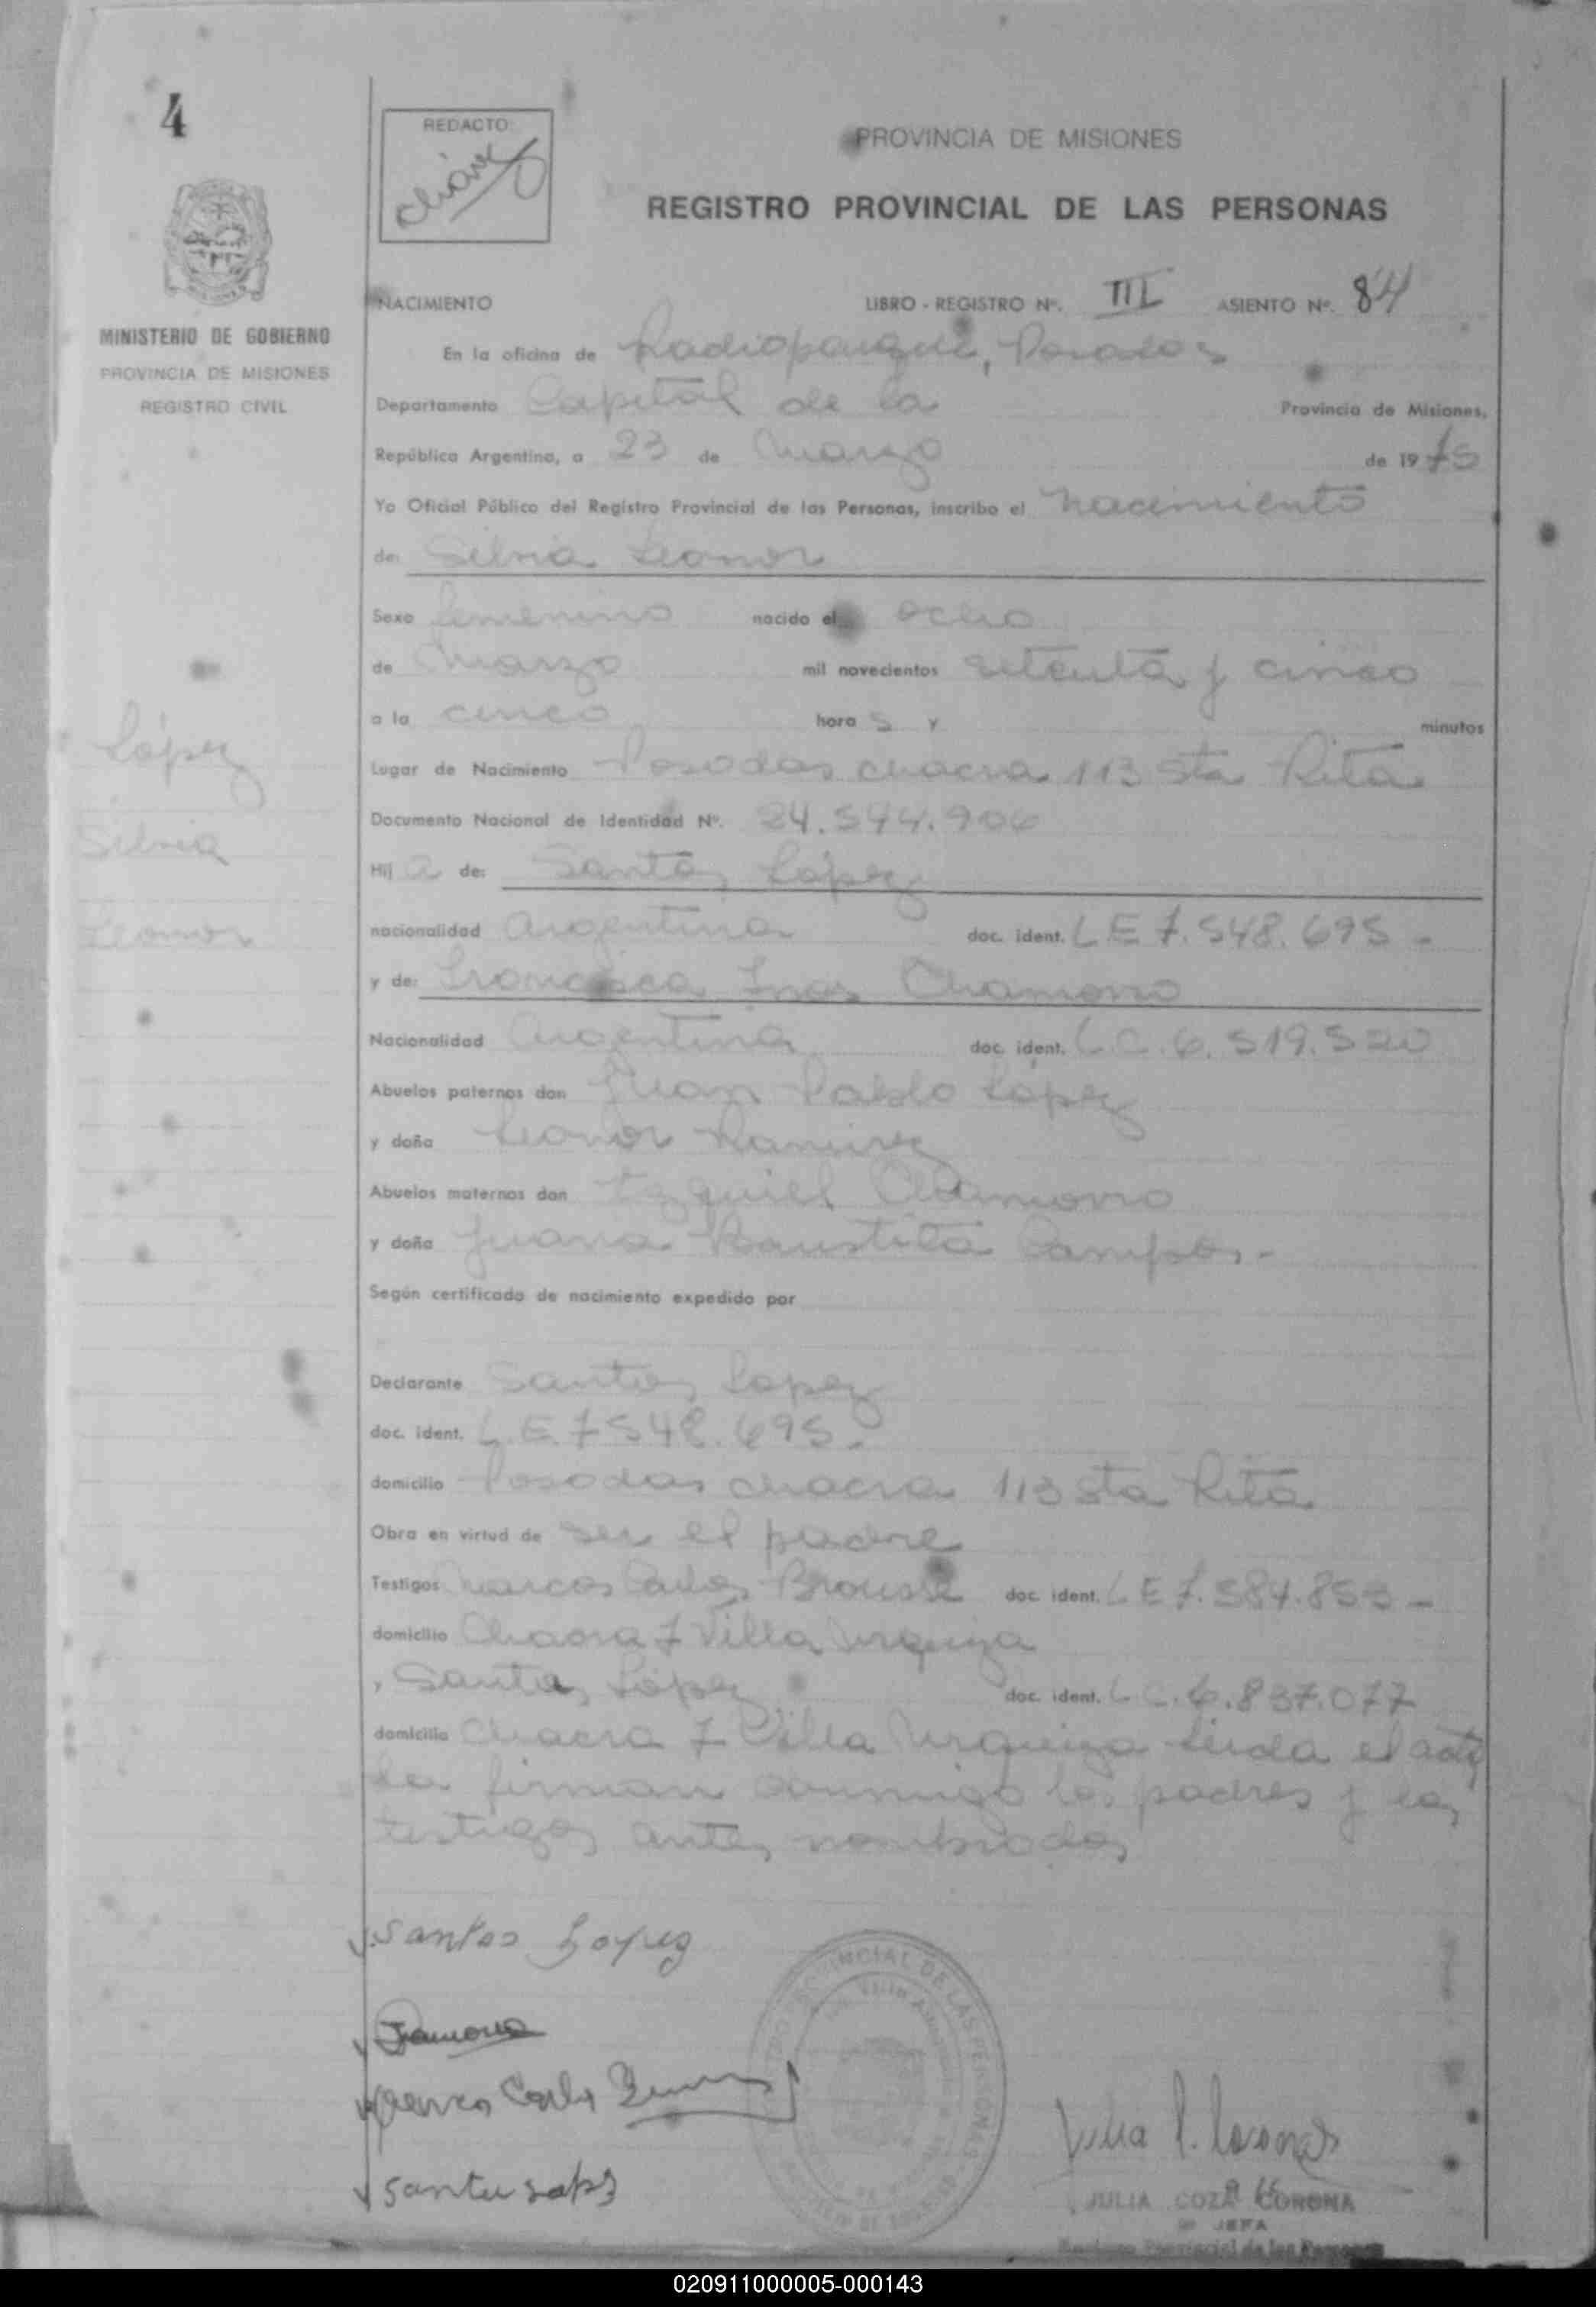 4
REDACTO:
PROVINCIA DE MISIONES
REGISTRO PROVINCIAL DE LAS PERSONAS
MINISTERIO DE GOBIERNO
PROVINCIA DE MISIONES
REGISTRO CIVIL
NACIMIENTO LIBRO - REGISTRO Nº. III ASIENTO Nº. 84
En la oficina de Radioparque, Posadas
Departamento Capital de la Provincia de Misiones,
República Argentina, a 23 de Marzo de 1975
Yo Oficial Público del Registro Provincial de las Personas, inscribo el nacimiento
de: Silvia Leonor
Sexo femenino nacido el ocho
de Marzo mil novecientos setenta y cinco
a la cinco hora s y minutos
López
Silvia
Leonor
Lugar de Nacimiento Posadas chacra 113 Sta Rita
Documento Nacional de Identidad Nº. 24.544.906
Hij a de: Santos López
nacionalidad Argentina doc. ident. L E 7.548.695 -
y de: Francisca Ines Chamorro
Nacionalidad Argentina doc. ident. L.C. 6.519.520
Abuelos paternos don Juan Pablo López
y doña Leonor Ramirez
Abuelos maternos don Ezquiel Chamorro
y doña Juana Bautista Campos.-
Según certificado de nacimiento expedido por
Declarante Santos Lopez
doc. ident. L.E. 7548.695.
domicilio Posadas chacra 113 Sta Rita
Obra en virtud de ser el padre
Testigos Marcos Carlos doc. ident. L E 7.584.853 -
domicilio Chacra 7 Villa Urquiza
, Santa López doc. ident. L C. 6.837.077
domicilio Chacra 7 Villa Urquiza Leida el acta
la firman conmigo los padres y los
testigos antes nombrados
Santos Lopez
JULIA COZA CORONA
JEFA
Registro Provincial de las Personas
020911000005-000143